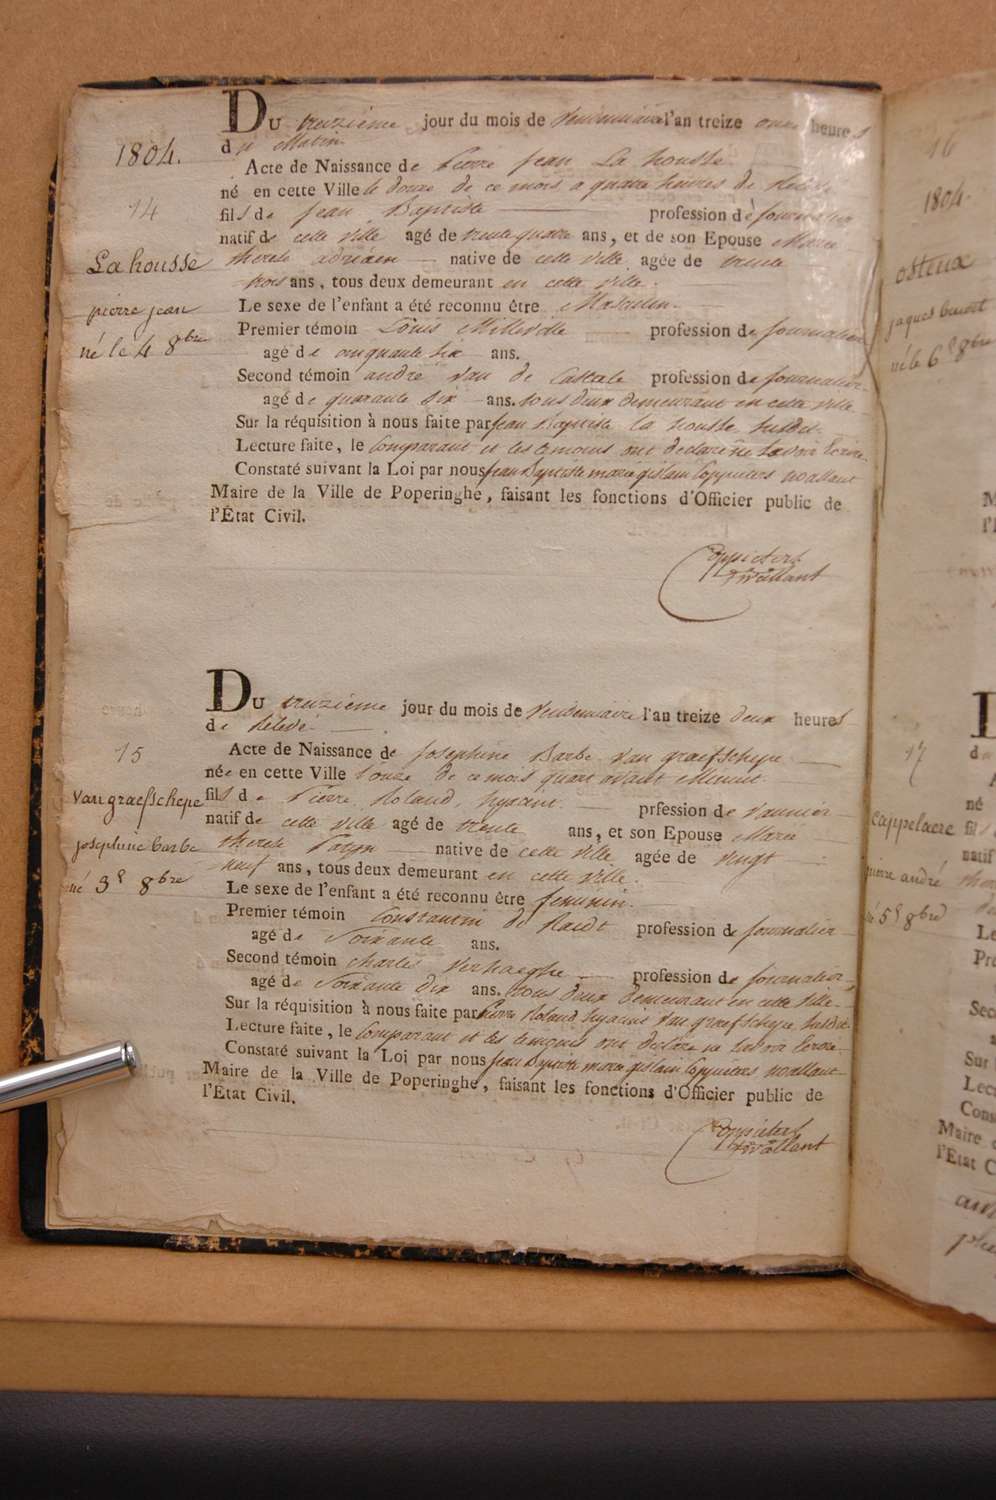 1804.
14
La housse
pierre jean
né le 4 8bre
Du treizieme jour du mois de Vendemiaire l'an treize onze heures
du Matin
Acte de Naissance de Pierre Jean La housse
né en cette Ville le douze de ce mois a quatre heures de Relevé
fils de Jean Baptiste profession de journalier
natif de cette ville agé de trente quatre ans, et de son Epouse Marie
therese adriaen native de cette ville agée de trente
trois ans, tous deux demeurant en cette ville.
Le sexe de l'enfant a été reconnu être Masculin.
Premier témoin Louis profession de journalier
agé de cinquante six ans.
Second témoin andré Van de Casteele profession de journalier
agé de quarante six ans. tous deux demeurant en cette ville
Sur la réquisition à nous faite par Jean Baptiste la housse susdit.
Lecture faite, le Comparant et les temoins ont declaré ne savoir Ecrire.
Constaté suivant la Loi par nous Jean Baptiste marie gislain Coppieters wallant
Maire de la Ville de Poperinghe, faisant les fonctions d'Officier public de
l'État Civil.
Coppieters
wallant
15
Vangraefschepe
josephine barbe
né 3e 8bre
Du treizieme jour du mois de Vendemiaire l'an treize deux heures
de Relevé.
Acte de Naissance de Josephine Barbe Van graefschepe
née en cette Ville l'onze de ce mois quart avant Minuit
fils de Pierre Roland hyacint prfession de Vannier
natif de cette ville agé de trente ans, et son Epouse Marie
therese native de cette ville agée de vingt
neuf ans, tous deux demeurant en cette ville.
Le sexe de l'enfant a été reconnu être feminin.
Premier témoin Constantin de Raedt profession de journalier
agé de Soixante ans.
Second témoin Charles Verhaeghe profession de journalier
agé de Soixante dix ans. tous deux demeurant en cette ville.
Sur la réquisition à nous faite par Pierre Roland hyacint Van graefschepe susdit.
Lecture faite, le Comparant et les temoins ont declaré ne savoir Ecrire.
Constaté suivant la Loi par nous Jean Baptiste marie gislain Coppieters wallant
Maire de la Ville de Poperinghe, faisant les fonctions d'Officier public de
l'État Civil.
Coppieters
wallant
16
1804.
osteux
jaques benoit
né le 6e 8bre
17
Cappelaere
pierre andré
né 5e 8bre